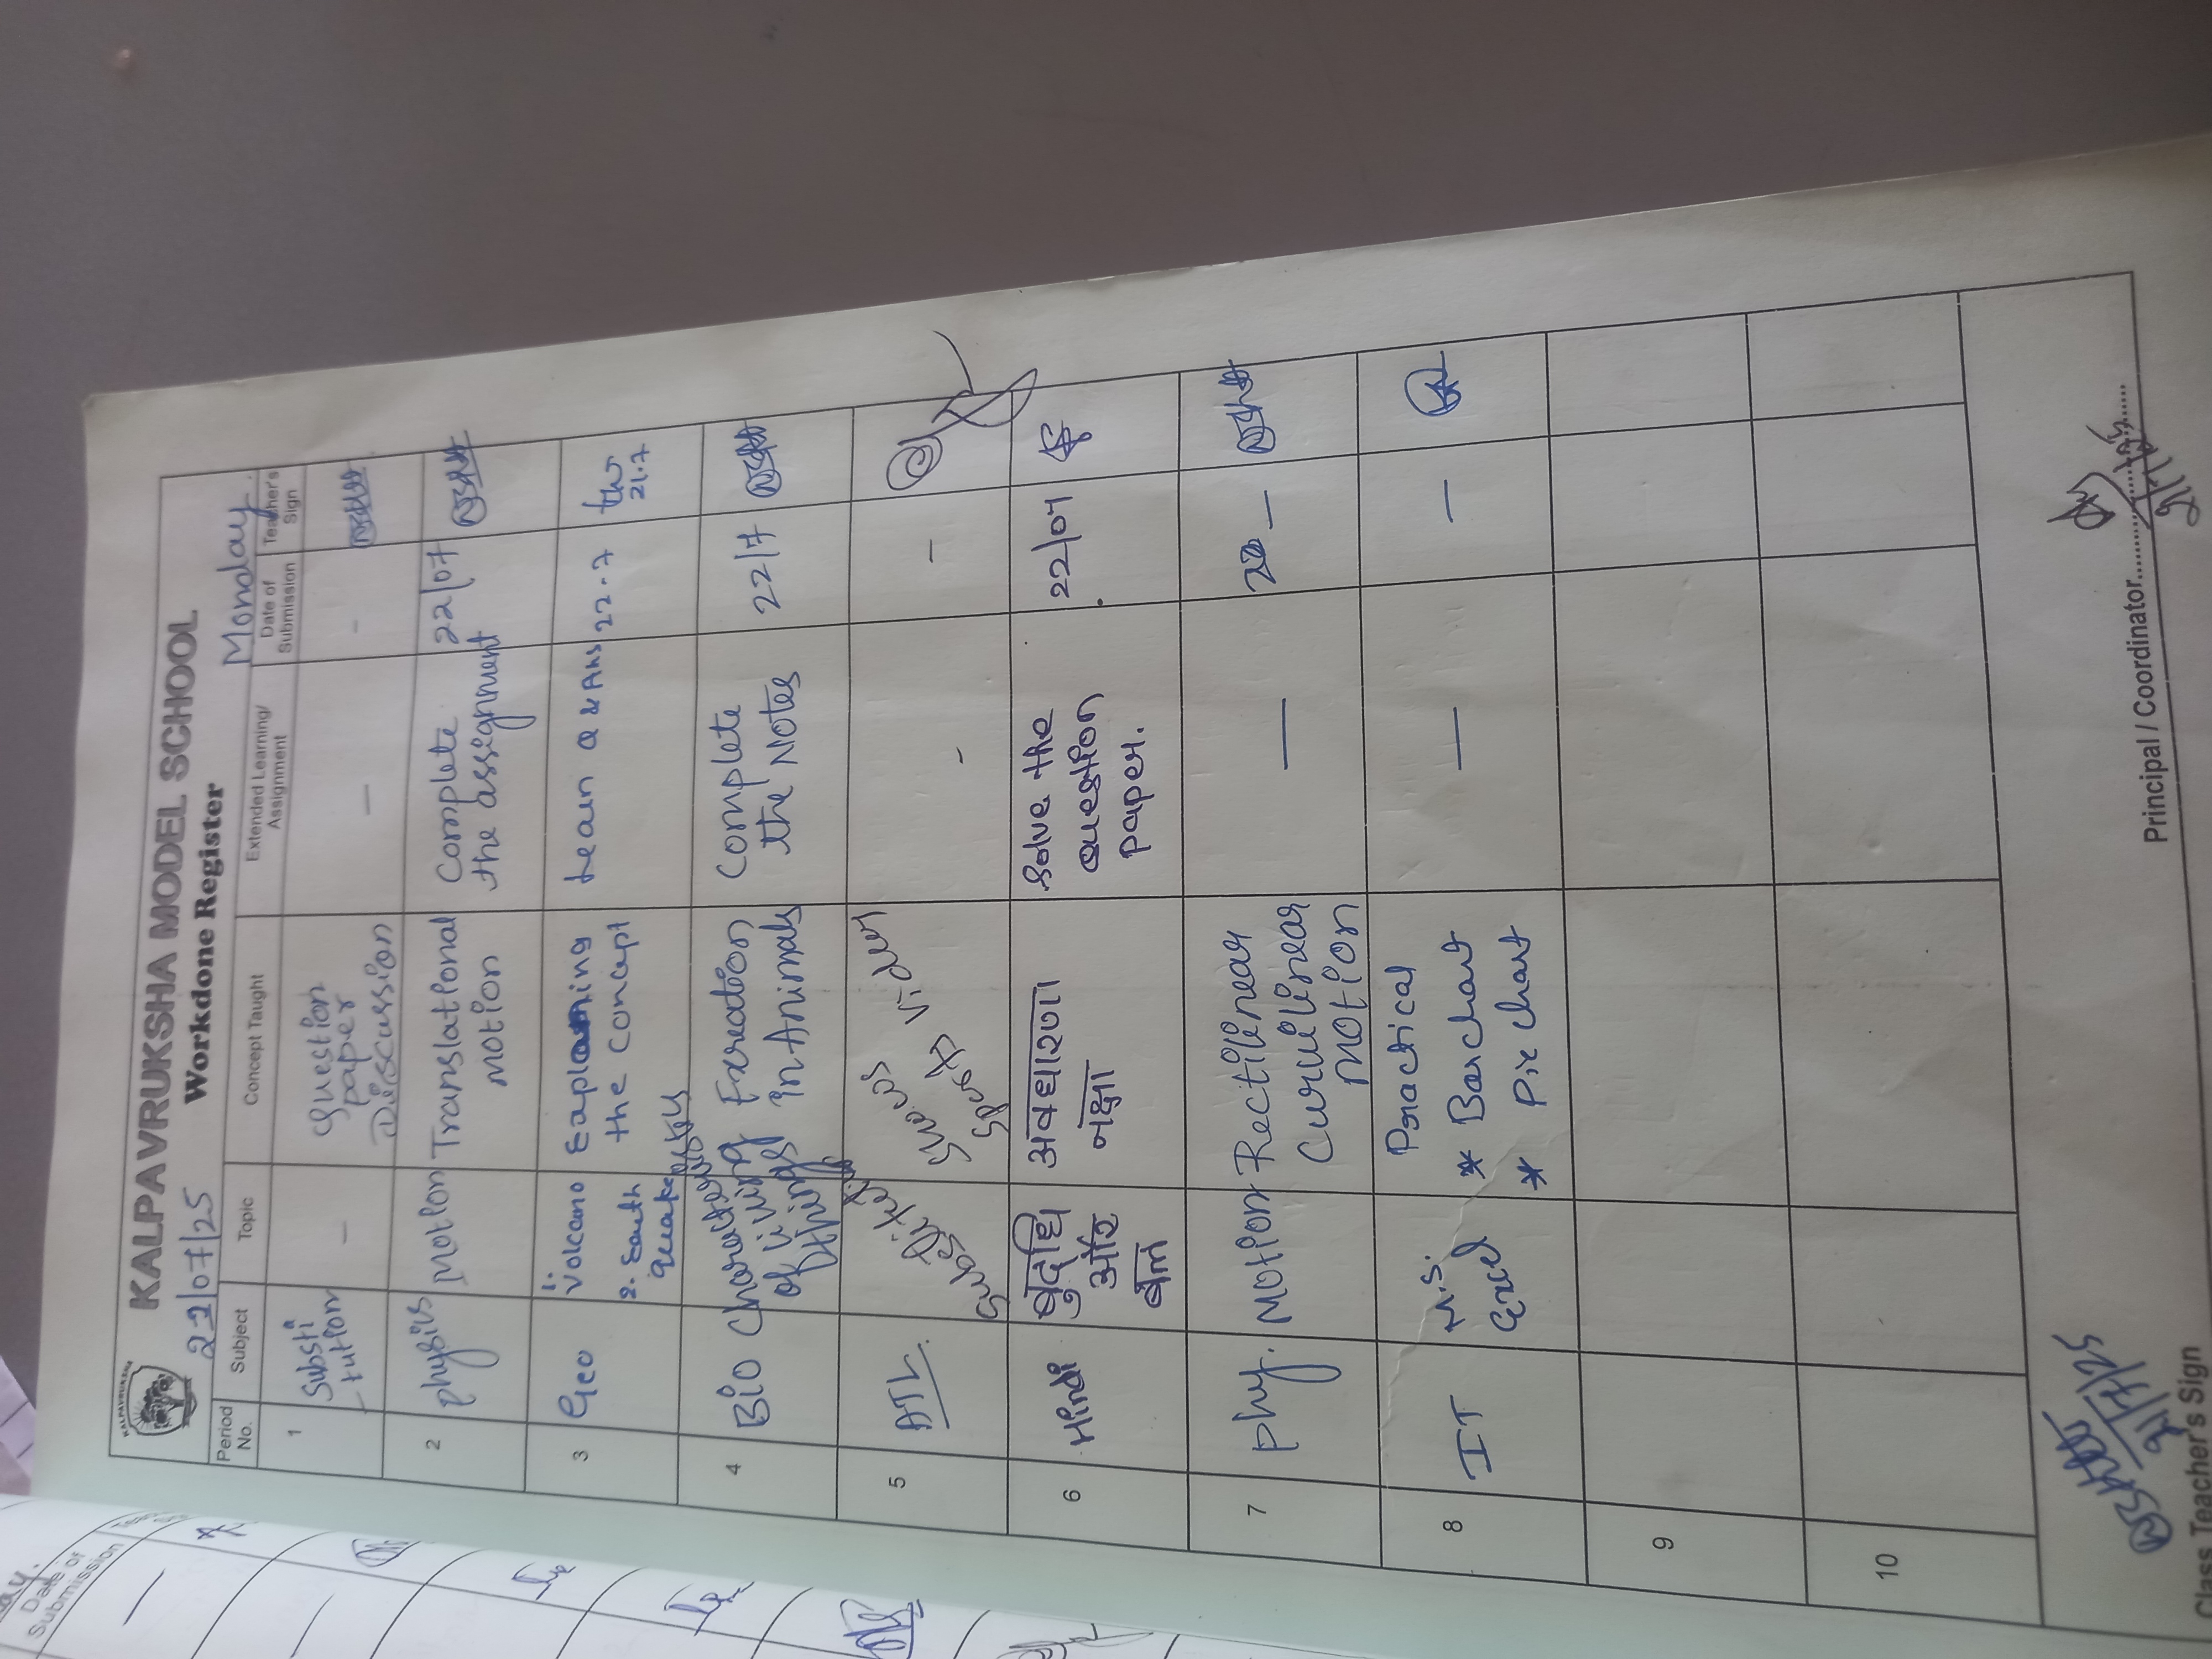 KALPAVRUKSHA
KALPAVRUKSHA MODEL SCHOOL
Workdone Register
22/07/25
Monday
Period No.
Subject
Topic
Concept Taught
Extended Learning/ Assignment
Date of Submission
Teacher's Sign
1
Substi
tution
—
Question
paper
Discussion
—
-
2
physics
Motion
Translational
Motion
Complete
the assignment
22/07
3
Geo
1.
Volcano
2. Earth
quake
the concept
Learn Q & Ans
22.7
21.7
4
Bio
of Living
things
Excreation
in Animals
Complete
the Notes
22/7
5
ATL
-
-
6
Hindi
बुद्धि
और
बल
अवधारणा
नक्षा
Solve the
question
paper.
22/07
7
Phy.
Motion
Rectilinear
Curvilinear
Motion
—
—
8
IT
M.S.
Excel
Practical
* Barchart
* Pie chart
—
—
9
10
Class Teacher's Sign
Principal / Coordinator
Date of
Submission